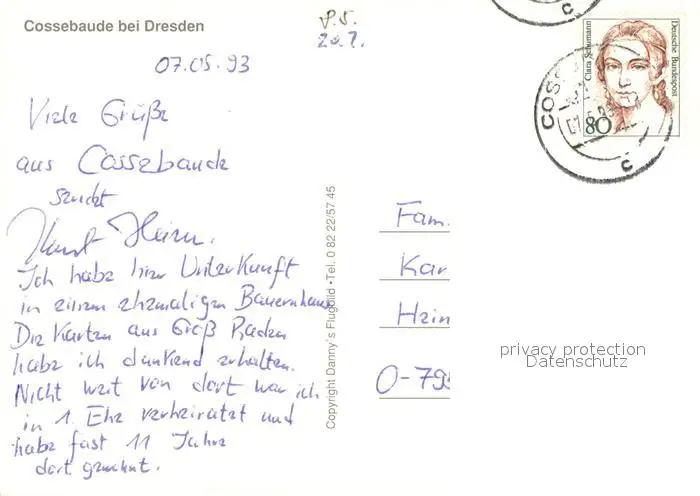 Cossebaude bei Dresden
P.S.
20.7.
07.05.93
Viele Grüße
aus Cossebaude
sendet
Horst Heinr.
Ich habe hier Unterkunft
in einem ehemaligen Bauernhaus
Die Karten aus Groß Raden
habe ich dankend erhalten.
Nicht weit von dort war ich
in 1. Ehe verheiratet und
habe fast 11 Jahre
dort gewohnt.
Copyright Danny's Flugbild •Tel. 0 82 22/57 45
Clara Schumann
Deutsche Bundespost
80
COSS
C
C
Fam.
Kar
Hein
O-795
privacy protection
Datenschutz